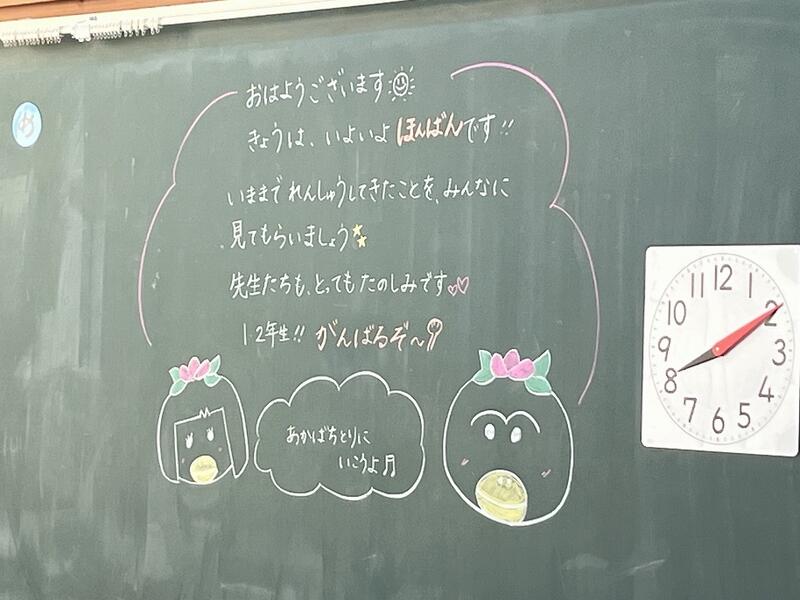 おはようございます
きょうは、いよいよ ほんばんです!!
いままで れんしゅうしてきたことを、みんなに
見てもらいましょう
先生たちも、とっても たのしみです
1・2年生!! がんばるぞ〜
あかばちとりに
いこうよ♬
12
1
2
3
4
5
6
7
8
9
10
11